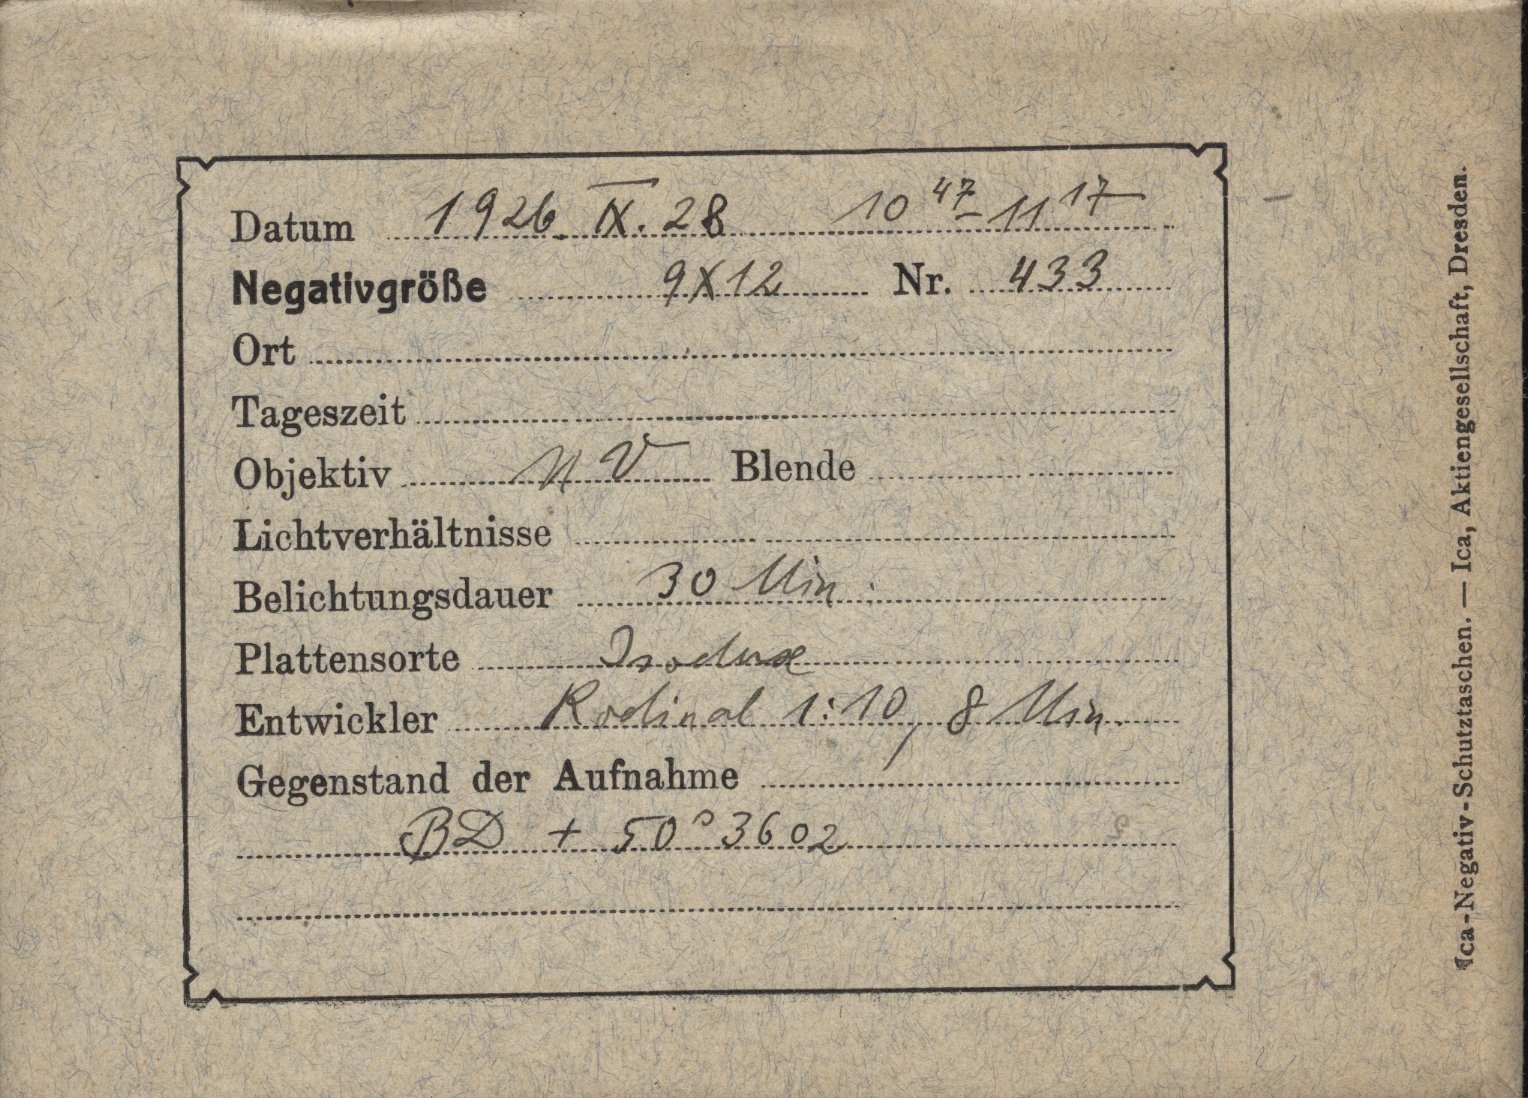 Datum 1926. IX. 28 10 47 - 11 17
Negativgröße 9X12 Nr. 433
Ort
Tageszeit
Objektiv V Blende
Lichtverhältnisse
Belichtungsdauer 30 Min.
Plattensorte Isodux
Entwickler Rodinal 1:10, 8 Min.
Gegenstand der Aufnahme
BD + 50° 3602
Ica-Negativ-Schutztaschen. — Ica, Aktiengesellschaft, Dresden.